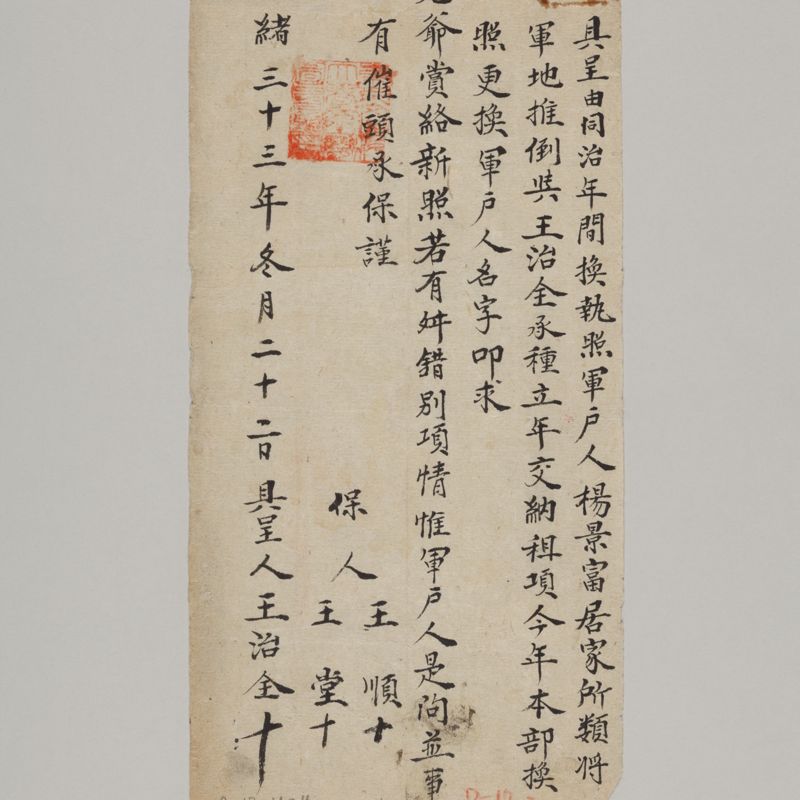 具呈由同治年間換執照軍戶人楊景富居家所類将
軍地推倒與王治全承種立年交納租項今年本部換
照更換軍戶人名字叩求
爺賞給新照若有舛錯別項情惟軍戶人是问並事
有催頭承保謹
保人
王順十
王堂十
緒三十三年冬月二十二日具呈人王治全十